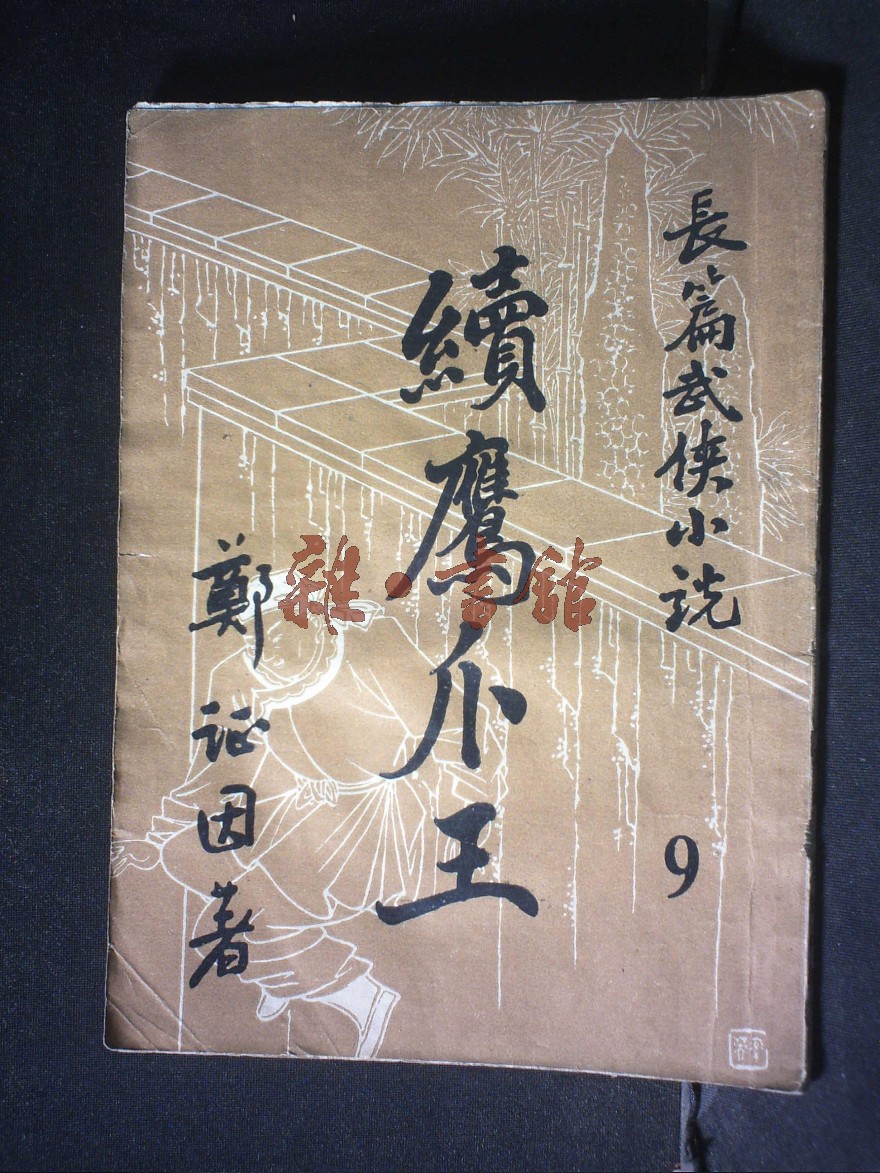 長篇武俠小説
9
續鷹爪王
鄭証因著
雜·書館